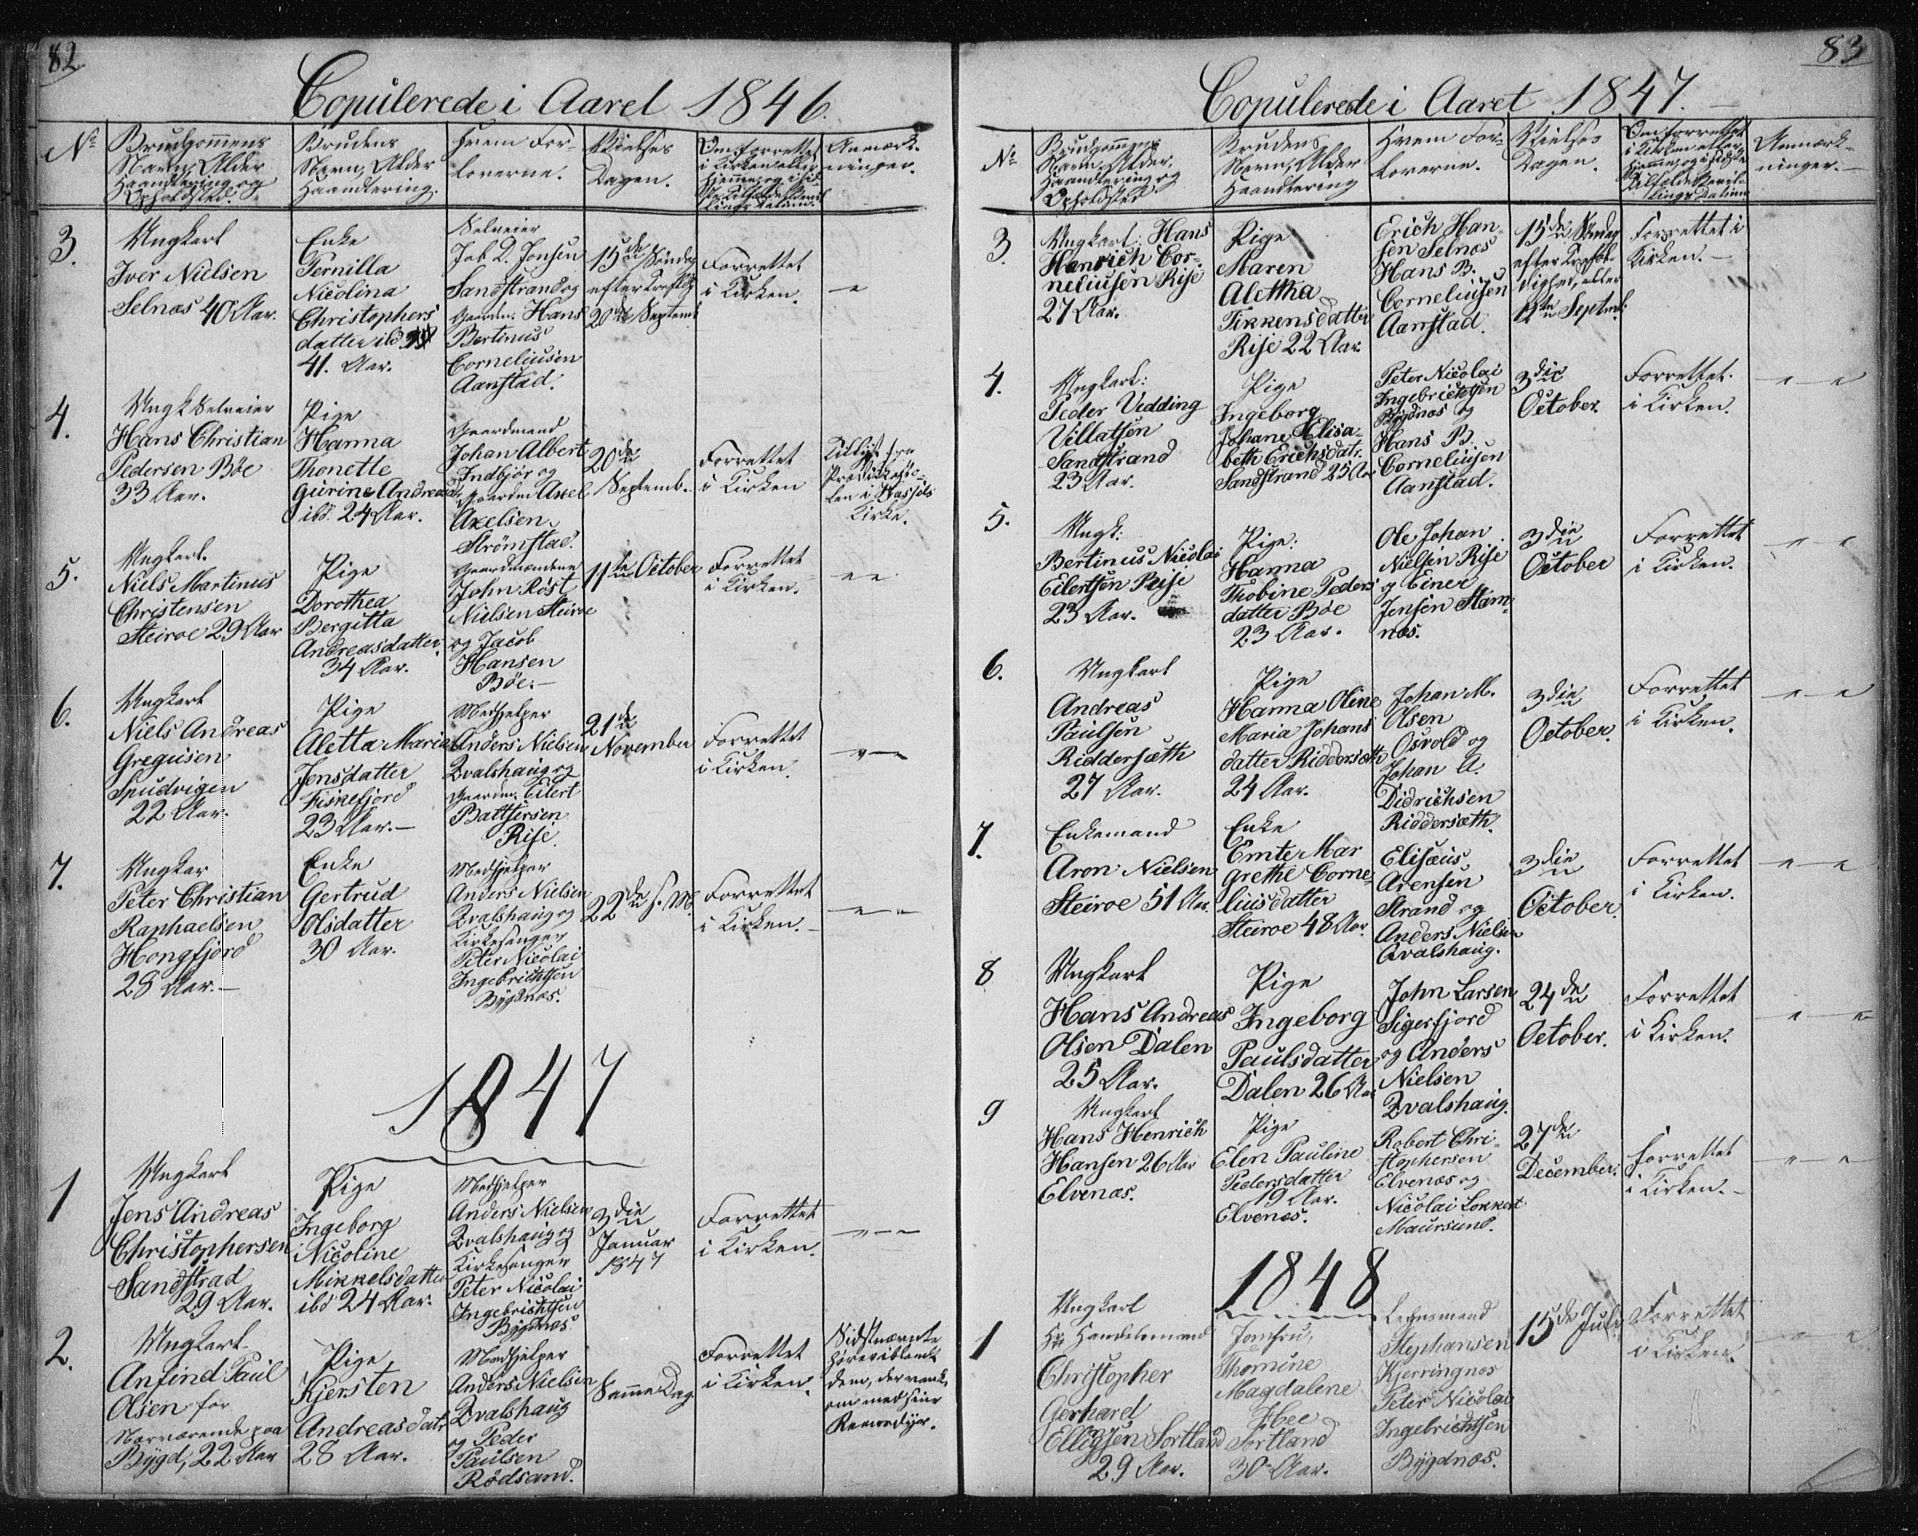 82
Copulerede i Aaret 1846.
No
Brudgommens
Navn, Alder
Haandtering og
Opholdsted.
Brudens
Navn, Alder
Haandtering.
Hvem For-
loverne.
Vielses
Dagen.
Om forrettet
i Kirken eller
hjemme, og i sid-
Anmærk-
ninger.
3.
Ungkarl
Iver Nielsen
Selnæs 40 Aar.
Enke
Pernilla
Nicolina
Christophers
datter ibd
41. Aar.
Selveier
Job L. Jonsen
Sandstrand og
Gaardm. Hans
Bertinus
Corneliusen
Aanstad.
15de Søndag
efter Trefoldig
20de Septemb
Forrettet
i Kirken.
"
4.
Ungk Selveier
Hans Christian
Pedersen Bøe
33 Aar.
Pige
Hanna
Thonette
Gurine Andreasd
ibd. 24 Aar.
Gaardmand
Johan Albert
Indbjør og
Gaardm Axel
Axelsen
Strømstad.
20de
Septemb.
Forrettet
i Kirken
Tillyst fra
Prædikesto-
len i Hassels
Kirke.
5.
Ungkarl.
Niels Martinus
Christensen
Steiroe 29 Aar
Pige
Dorothea
Bergitta
Andreasdatter
34 Aar.
Gaardmændene
John Røst
Nielsen Steiroe
og Jacob
Hansen
Bøe.-
11te October
Forrettet
i Kirken.
" "
6.
Ungkarl
Niels Andreas
Gregusen
Spudvigen
22 Aar.
Pige
Aletta Maria
Jensdatter
Fiskefjord
23 Aar.-
Medhjelper
Anders Nielsen
Kvalshaug og
Gaardm. Eilert
Battfersen
Rise.
21de
November
Forrettet
i Kirken.
" "
7.
Ungkar
Peter Christian
Raphaelsen
Hongfjord
28 Aar.-
Enke
Gertrud
Olsdatter
30 Aar.
Medhjelper
Anders Nielsen
Kvalshaug og
Kirkesanger
Peter Nicolai
Ingebrichtsen
Bygdnæs.
22de s. M.
Forrettet
i Kirken.-
" "
1847
1
Ungkarl
Jens Andreas
Christophersen
Sandstrad
29 Aar.
Pige
Ingeborg
Nicoline
Mikkelsdatter
ibd 24 Aar.
Medhjelper
Anders Nielsen
Kvalshaug og
Kirkesanger
Peter Nicolai
Ingebrichtsen
Bygdnæs
3die
Januar
1847
Forrettet
i Kirken.
" "
2.
Ungkarl.
Anfind Paul
Olsen for
Nærværende paa
Bygd, 22 Aar
Pige
Kjersten
Andreasdatr
28 Aar.
Medhjelper
Anders Nielsen
Kvalshaug
og Peder
Paulsen
Rødsand.
Samme Dag
Forrettet
i Kirken.
Sidstnævnte
hørevi blandt
dem, der vank
om med sine
Reensdyr.
83
Copulerede i Aaret 1847.
No
Brudgommens
Navn, Alder,
Haandtering og
Opholdsted
Brudens
Navn, Alder
Haandtering
Hvem For-
loverne.
Vielses
Dagen.
Om forrettet
i Kirken eller
hjemme, og i sidste
Tilfælde Bevil-
lings Datum
Anmærk-
ninger.-
3.
Ungkarl: Hans
Hænrich Cor-
neliusen Rise
27 Aar.
Pige
Maren
Alettha
Tikkensdatter
Rise 22 Aar
Erich Han-
sen Selnæs
Hans B.
Corneliusen
Aanstad.
15de Søndag
efter Trefol-
dighed, eller
12te Septmb
Forrettet i
Kirken.-
4.
Ungkarl:
Peder Vedding
Villatsen
Sandstrand
23 Aar.
Pige
Ingeborg
Johane Elisa-
beth Erichsdatr.
Sandstrand 25 Aar
Peter Nicolai
Ingebrichtsen
Bygdnæs og
Hans B.
Corneliusen
Aanstad.
3die
October
Forrettet.
i Kirken.
" "
5.
Ungk:
Bertinus Nicolai
Eilertsen Rise
23 Aar.
Pige:
Hanna
Thobine Peders
datter Bøe
23 Aar.
Ole Johan
Nielsen Rise
og Einer
Jensen Stam-
næs.
3die
October
Forrettet
i Kirken.
" "
6.
Ungkarl
Andreas
Paulsen
Riddersæth
27 Aar.
Pige
Hanna Oline
Maria Johans
datter Riddersæth
24 Aar.
Johan M.
Olsen
Osvold og
Johan A.
Didrichsen
Riddersæth.
3die
October.
Forrettet
i Kirken.
" "
7.
Enkemand
Aron Nielsen
Steiroe 51 Aar
Enke
Emte Mar
grethe Corne-
liusdatter
Steiroe 48 Aar.
Elisæus
Arensen
Strand og
Anders Nielsen
Qvalshaug.
3die
October.
Forrettet
i Kirken.
" "
8
Ungkarl
Hans Andreas
Olsen Dalen
25 Aar.
Pige
Ingeborg
Paulsdatter
Dalen 26 Aar
John Larsen
Sigerfjord
og Anders
Nielsen
Kvalshaug.
24de
October.
Forrettet
i Kirken.
" "
9
Ungkarl
Hans Henrich
Hansen 26 Aar
Elvenæs.
Pige
Elen Pauline
Pedersdatter
19 Aar.
Elvenæs.
Robert Chri-
stophersen
Elvenæs og
Nicolai Lokkert
Maursund.
27de
December.
forrettet
i Kirken.-
" "
1848
1
Ungkarl
Hr Handelsmand
Christopher
Gerhard
Elligsen Sortland
29 Aar.
Jomfru,
Thomine
Magdalene
Hee
Sortland
30 Aar.
Lensmand
Stephansen
Kjerringnæs
Peter Nicolai
Ingebrichtsen
Bygdnæs.
15de Juli
Forrettet
i Kirken.
" "